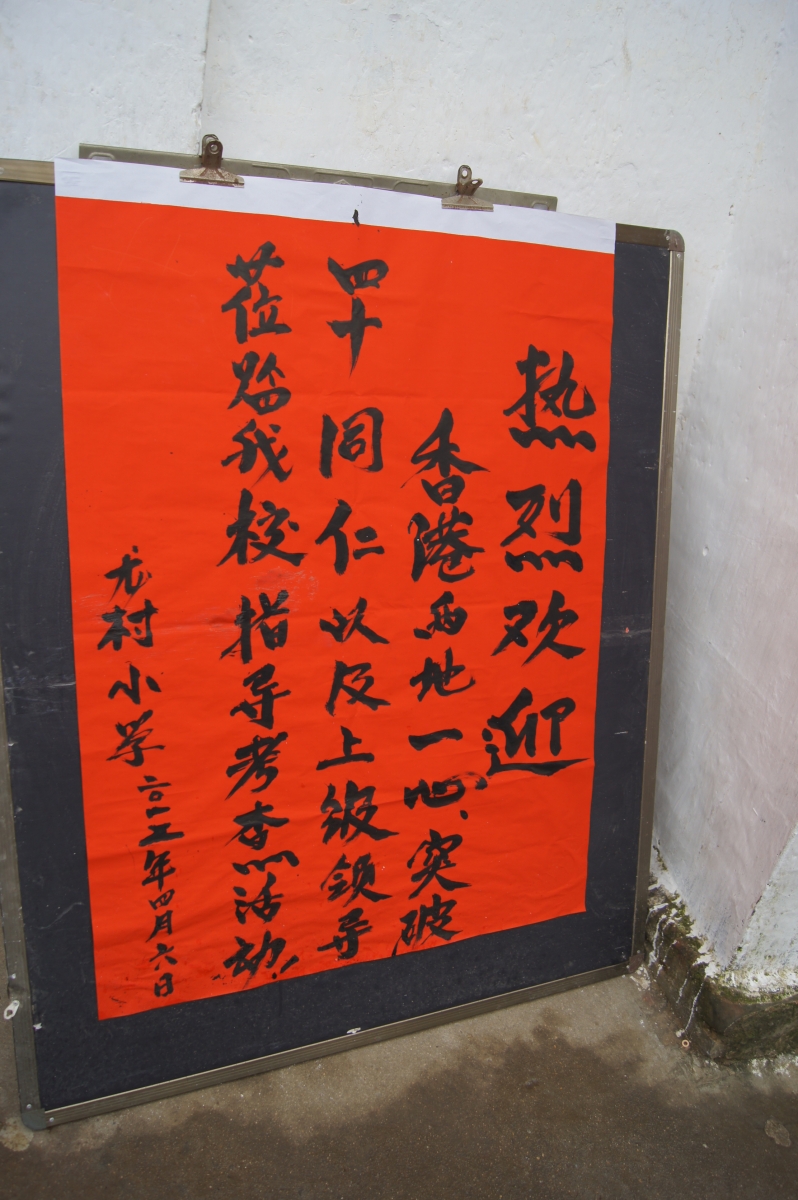 热烈欢迎
香港两地一心、突破
四十同仁以及上级领导
莅临我校指导考查活动!
村小学二〇一五年四月六日